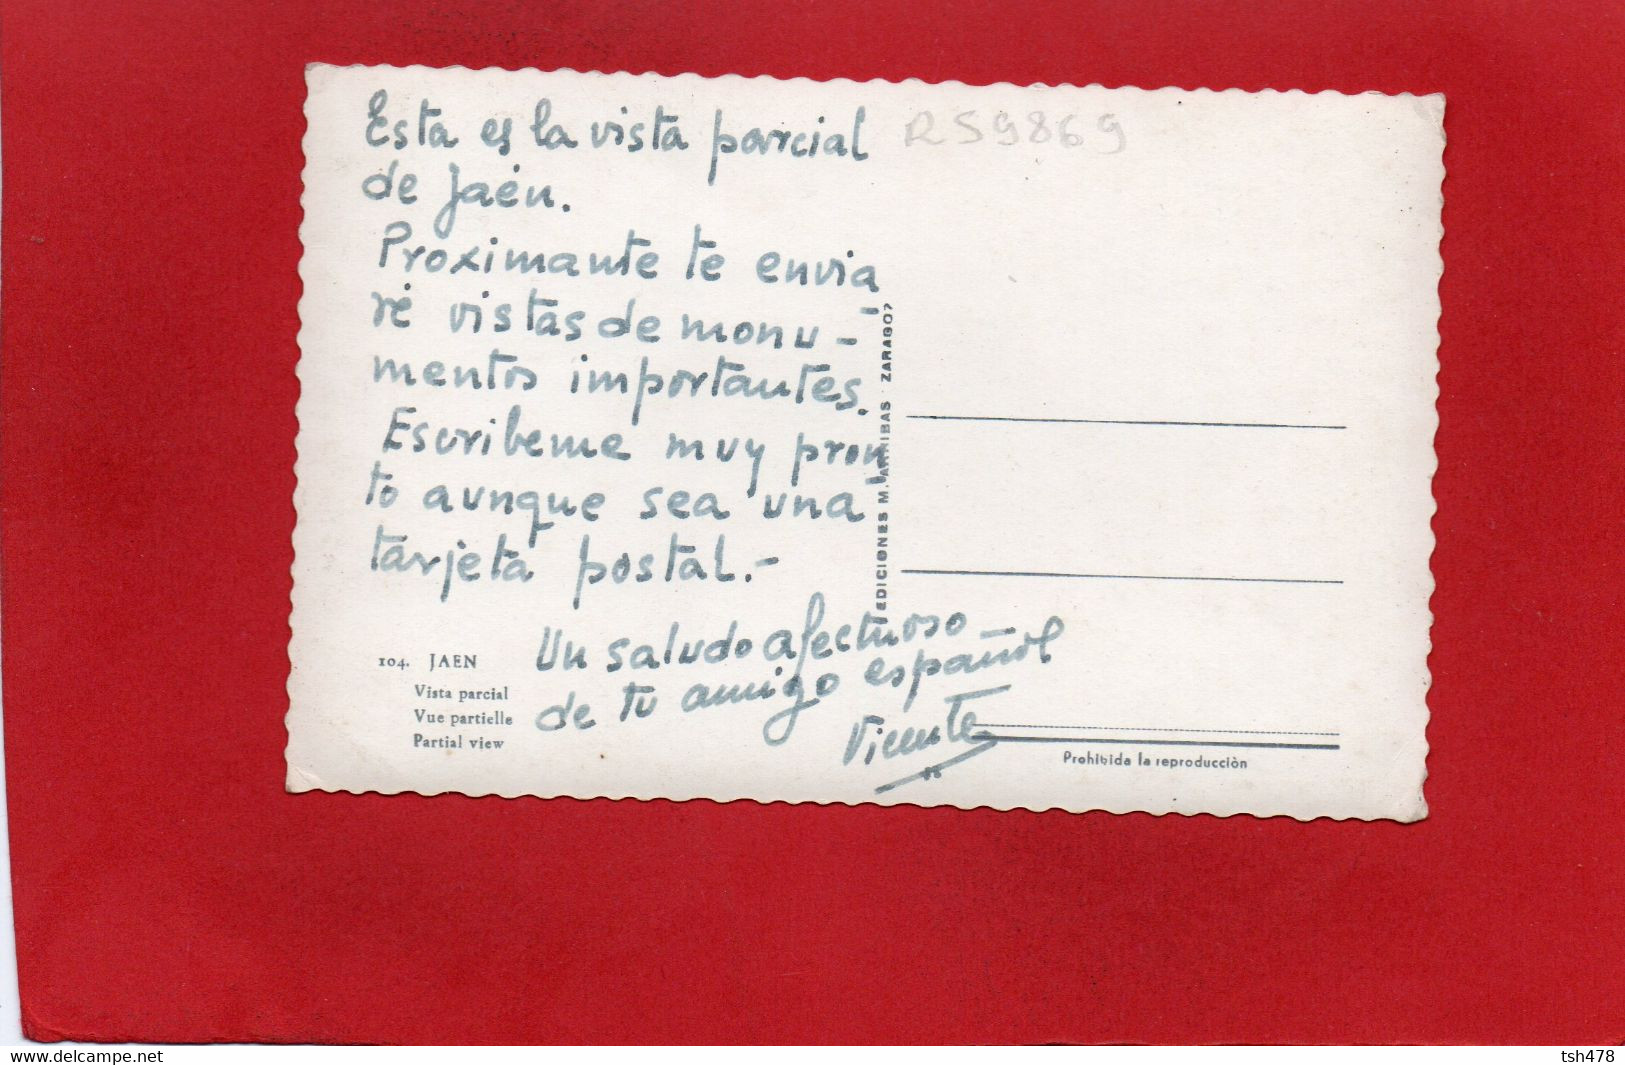 Esta es la vista parcial
de Jaén.
Proximante te envia
ré vistas de monu-
mentos importantes.
Escribeme muy pron
to aunque sea una
tarjeta postal.-
Un saludo afectuoso
de tu amigo español
Vicente
R59869
EDICIONES M. ARRIBAS · ZARAGOZ
104. JAEN
Vista parcial
Vue partielle
Partial view
Prohibida la reproducciòn
www.delcampe.net
tsh478